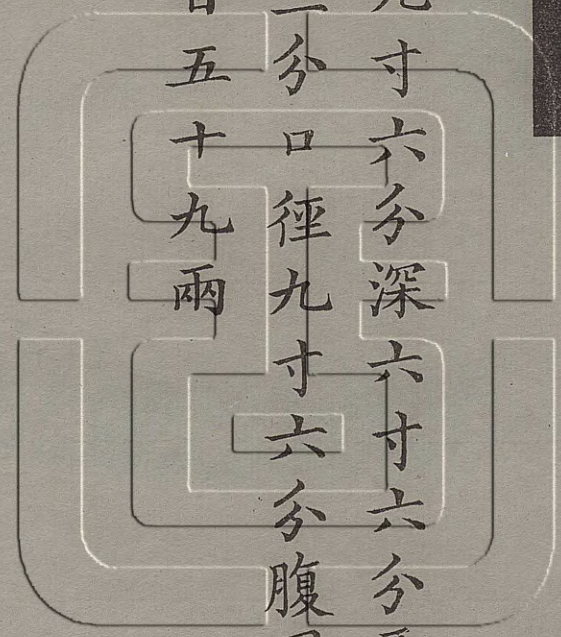 寸六分深六寸六分
分口徑九寸六分腹
五十九兩